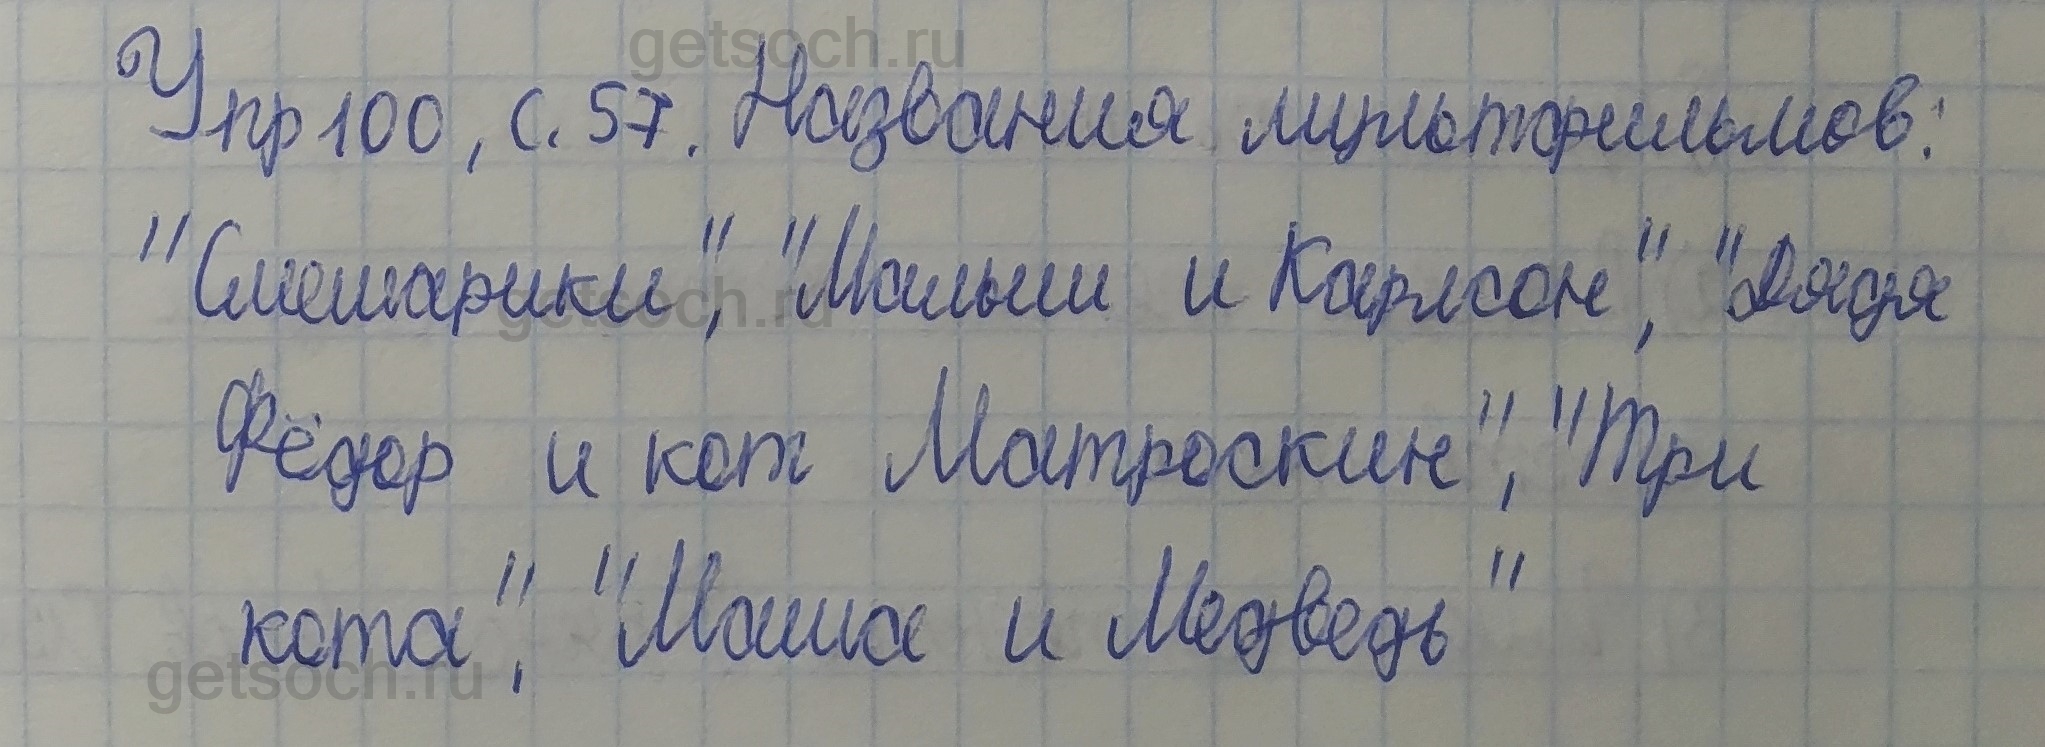 getsoch.ru
Упр 100, с. 57. Названия мультфильмов:
"Смешарики", "Малыш и Карлсон", "Дядя
getsoch.ru
Фёдор и кот Матроскин", "Три
кота", "Маша и Медведь"
getsoch.ru